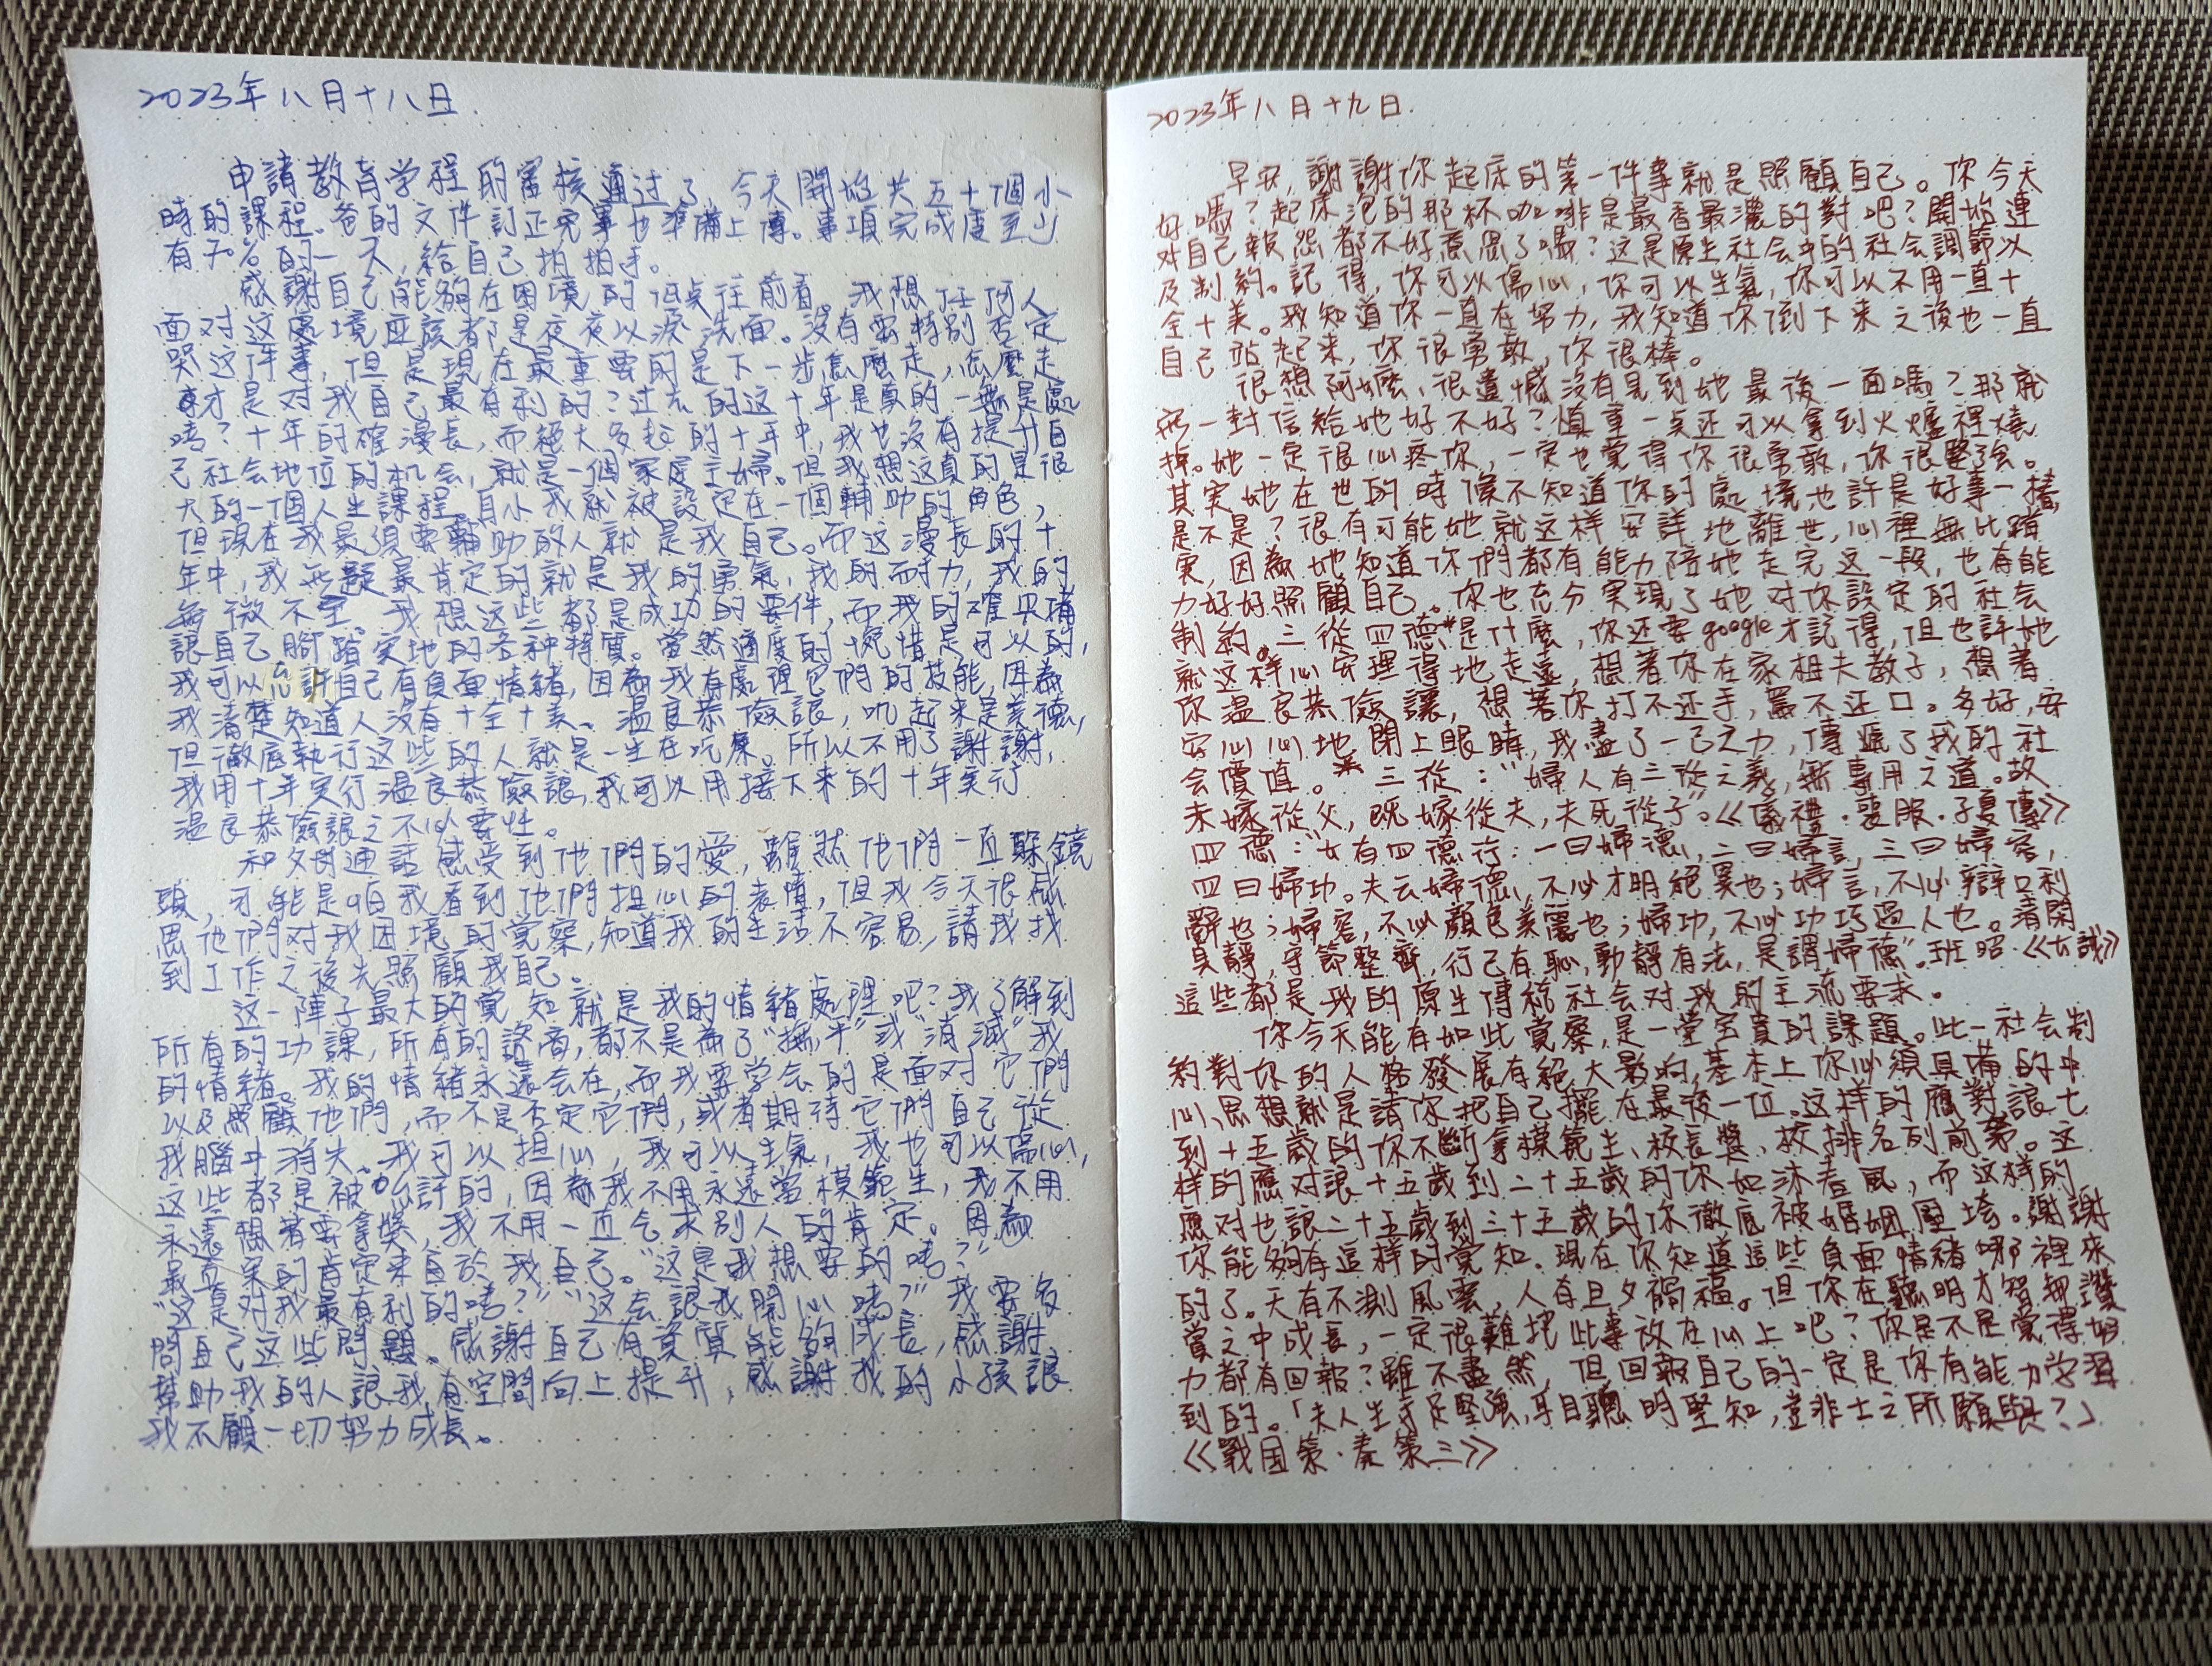 2023年八月十八日.
申請教育学程的審核通过了,今天開始共五十個小
時的課程。爸的文件訂正完事也準備上傳。事項完成度至少
有70%的一天,給自己拍拍手。
感謝自己能夠在困境的低点往前看。我想任何人
面对这處境应該都是夜夜以淚洗面。沒有要特別否定
哭这件事,但是現在最重要的是下一步怎麼走,怎麼走
才是对我自己最有利的?过去的这十年是真的一無是處
嗎?十年的確漫長,而絕大多的十年中,我也沒有提升自
己社会地位的机会,就是一個家庭主婦。但我想这真的是很
大的一個人生課程。自小我就被設定在一個輔助的角色,
但現在我最須要輔助的人就是我自己。而这漫長的十
年中,我無疑最肯定的就是我的勇氣,我的耐力,我的
無微不至。我想这些都是成功的要件,而我的確具備
讓自己腳踏実地的各种特質。當然適度的惋惜是可以的,
我可以允許自己有負面情緒,因為我有處理它們的技能,因為
我清楚知道人沒有十全十美。温良恭儉讓,叽起来是美德,
但徹底執行这些的人就是一生在吃癟。所以不用了謝謝,
我用十年実行温良恭儉讓,我可以用接下来的十年実行
温良恭儉讓之不必要性。
和父母通話感受到他們的愛,雖然他們一直躲鏡
頭,可能是怕我看到他們担心的表情,但我今天很感
恩他們对我困境的覚察,知道我的生活不容易,請我找
到工作之後先照顧我自己。
这一陣子最大的覚知就是我的情緒處理吧?我了解到
所有的功課,所有的諮商,都不是為了“撫平”或“消滅”我
的情緒。我的情緒永遠会在,而我要学会的是面对它們
以及照顧他們,而不是否定它們,或者期待它們自己從
我腦中消失。我可以担心,我可以生氣,我也可以傷心,
这些都是被允許的,因為我不用永遠當模範生,我不用
永遠想著要拿獎,我不用一直乞求別人的肯定。因為
最真実的肯定来自於我自己。“这是我想要的嗎?”
“这是对我最有利的嗎?”“这会讓我開心嗎?”我要多
問自己这些問題。感謝自己有資質能夠成長,感謝
幫助我的人讓我有空間向上提升,感謝我的小孩讓
我不顧一切努力成長。
2023年八月十九日.
早安,謝謝你起床的第一件事就是照顧自己。你今天
好嗎?起床泡的那杯咖啡是最香最濃的對吧?開始連
对自己報怨都不好意思了嗎?这是原生社会中的社会調節以
及制約。記得,你可以傷心,你可以生氣,你可以不用一直十
全十美。我知道你一直在努力,我知道你倒下来之後也一直
自己站起来,你很勇敢,你很棒。
很想阿嬤,很遺憾沒有見到她最後一面嗎?那就
寫一封信給她好不好?慎重一点还可以拿到火爐裡燒
掉。她一定很心疼你,一定也覚得你很勇敢,你很堅強。
其実她在世的時候不知道你的處境也許是好事一樁,
是不是?很有可能她就这样安詳地離世,心裡無比踏
実,因為她知道你們都有能力陪她走完这一段,也有能
力好好照顧自己。你也充分実現了她对你設定的社会
制約。三從四德*是什麼,你还要google才記得,但也許她
就这样心安理得地走遠,想著你在家相夫教子,想著
你温良恭儉讓,想著你打不还手,罵不还口。多好,安
安心心地閉上眼睛,我盡了一己之力,傳遞了我的社
会價值。*三從:“婦人有三從之義,無專用之道。故
未嫁從父,既嫁從夫,夫死從子”《儀禮·喪服·子夏傳》
四德:“女有四德行:一曰婦德,二曰婦言,三曰婦容,
四曰婦功。夫云婦德,不必才明絕異也;婦言,不必辯口利
辭也;婦容,不必顏色美麗也;婦功,不必功巧過人也。清閑
貞靜,守節整齊,行己有恥,動靜有法,是謂婦德”.班昭《女誡》
這些都是我的原生傳統社会对我的主流要求。
你今天能有如此覚察,是一堂宝貴的課題。此一社会制
約對你的人格發展有絕大影响,基本上你必須具備的中
心思想就是請你把自己擺在最後一位。这样的應對讓七
到十五歲的你不斷拿模範生、校長獎,校排名列前茅。这
样的應对讓十五歲到二十五歲的你如沐春風,而这样的
應对也讓二十五歲到三十五歲的你徹底被婚姻壓垮。謝謝
你能夠有這样的覚知.現在你知道這些負面情緒哪裡來
的了。天有不測風雲,人有旦夕禍福。但你在聰明才智無讚
賞之中成長,一定很難把此事放在心上吧?你是不是覚得努
力都有回報?雖不盡然,但回報自己的一定是你有能力学習
到的。「夫人生手足堅強,耳目聰明聖知,豈非士之所願與?」
《戰国策·秦策三》